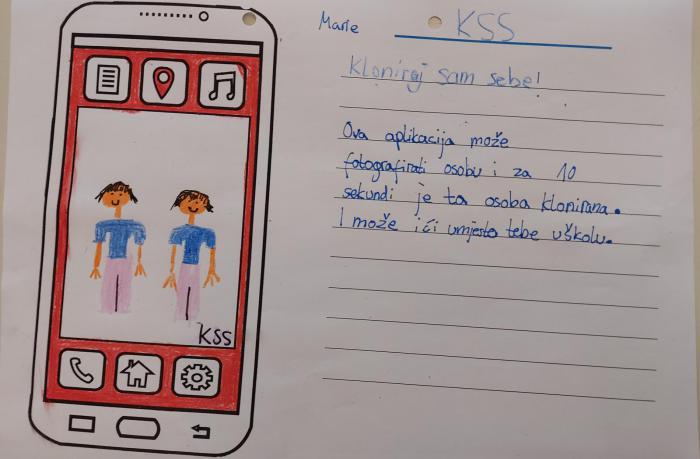 Marie
KSS
Kloniraj sam sebe!
Ova aplikacija može
fotografirati osobu i za 10
sekundi je ta osoba klonirana.
I može ići umjesto tebe u školu.
KSS